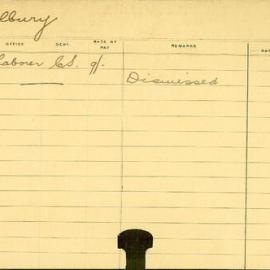 lbury
OFFICE DEPT. RATE OF PAY REMARKS
Laborer C.S. Dismissed